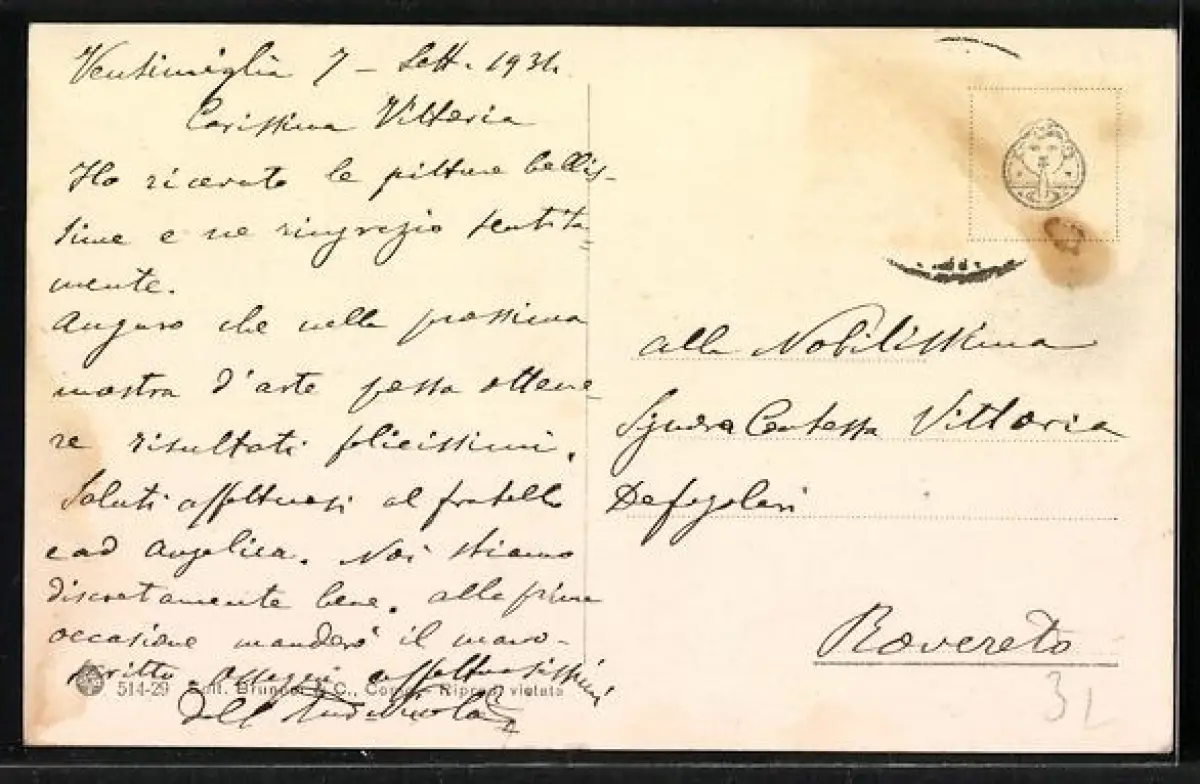 Ventimiglia 7 - Sett. 1931.
Carissima Vittoria
Ho ricevuto le pitture bellis-
sime e ne ringrazio sentita-
mente.
Auguro che nella prossima
mostra d'arte possa ottene-
re risultati felicissimi.
Saluti affettuosi al fratello
e ad Angelica. Noi stiamo
discretamente bene. alla prima
occasione manderò il mano-
scritto affettuosissimi
514-29 Edit. Brunner & C., Como - Riprod. vietata
dell'
alla Nobilissima
Signora Contessa Vittoria
Defogolari
Rovereto
3L